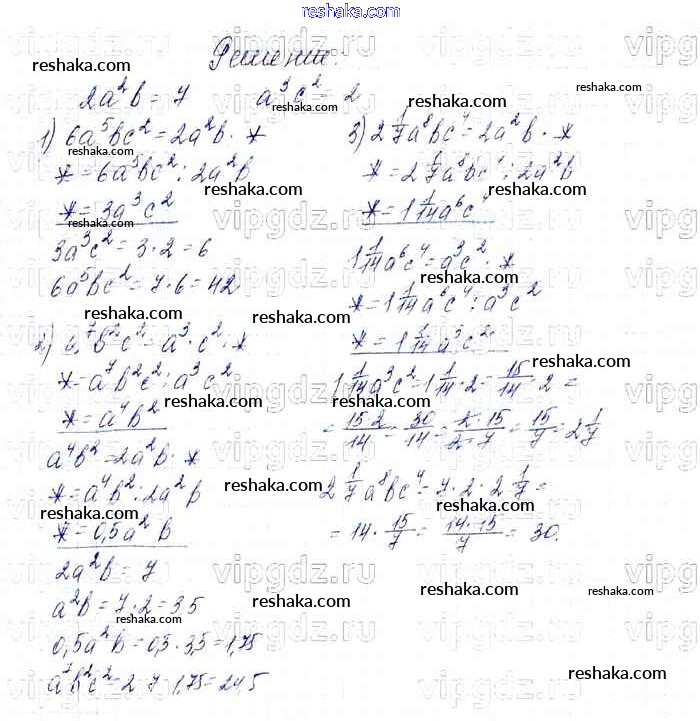 Решение:
2a²b = 7 a³c² = 2
1) 6a⁵bc² = 2a²b · *
* = 6a⁵bc² : 2a²b
* = 3a³c²
3a³c² = 3 · 2 = 6
6a⁵bc² = 7 · 6 = 42
2) a⁷b²c² = a³ · c² · *
* = a⁷b²c² : a³c²
* = a⁴b²
a⁴b² = 2a²b · *
* = a⁴b² : 2a²b
* = 0,5a²b
2a²b = 7
a²b = 7 : 2 = 3,5
0,5a²b = 0,5 · 3,5 = 1,75
a⁷b²c² = 2 · 7 · 1,75 = 24,5
3) 2 1/7 a⁸bc⁴ = 2a²b · *
* = 2 1/7 a⁸bc⁴ : 2a²b
* = 1 1/14 a⁶c⁴
1 1/14 a⁶c⁴ = a³c² · *
* = 1 1/14 a⁶c⁴ : a³c²
* = 1 1/14 a³c²
1 1/14 a³c² = 1 1/14 · 2 = 15/14 · 2 =
= 15·2/14 = 30/14 = 2·15/2·7 = 15/7 = 2 1/7
2 1/7 a⁸bc⁴ = 7 · 2 · 2 1/7 =
= 14 · 15/7 = 14·15/7 = 30.
reshaka.com
vipgdz.ru